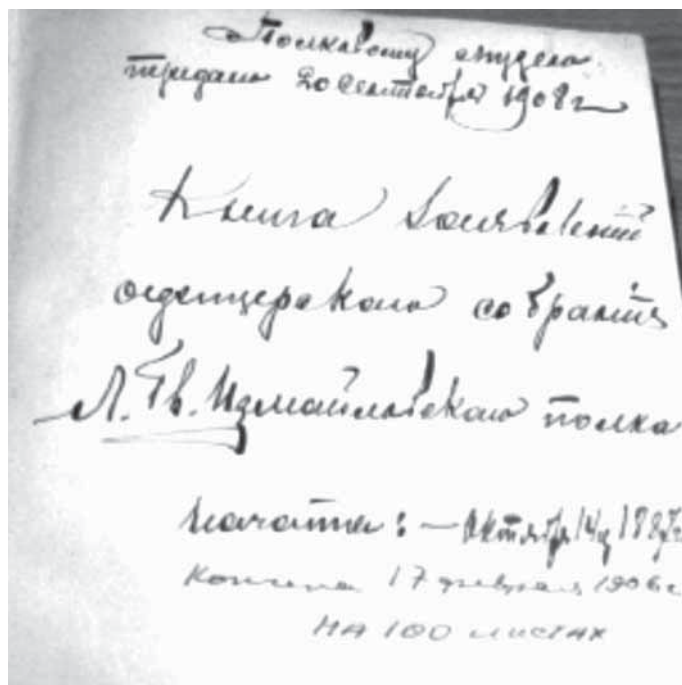 Полковому
передана 20 Сентября 1908 г
Книга Заявленій
офицерскаго собранія
Л. Гв. Измайловскаго полка
начата: — Октября 14 д 188
Кончена 17 февраля 1906 г
НА 100 листах